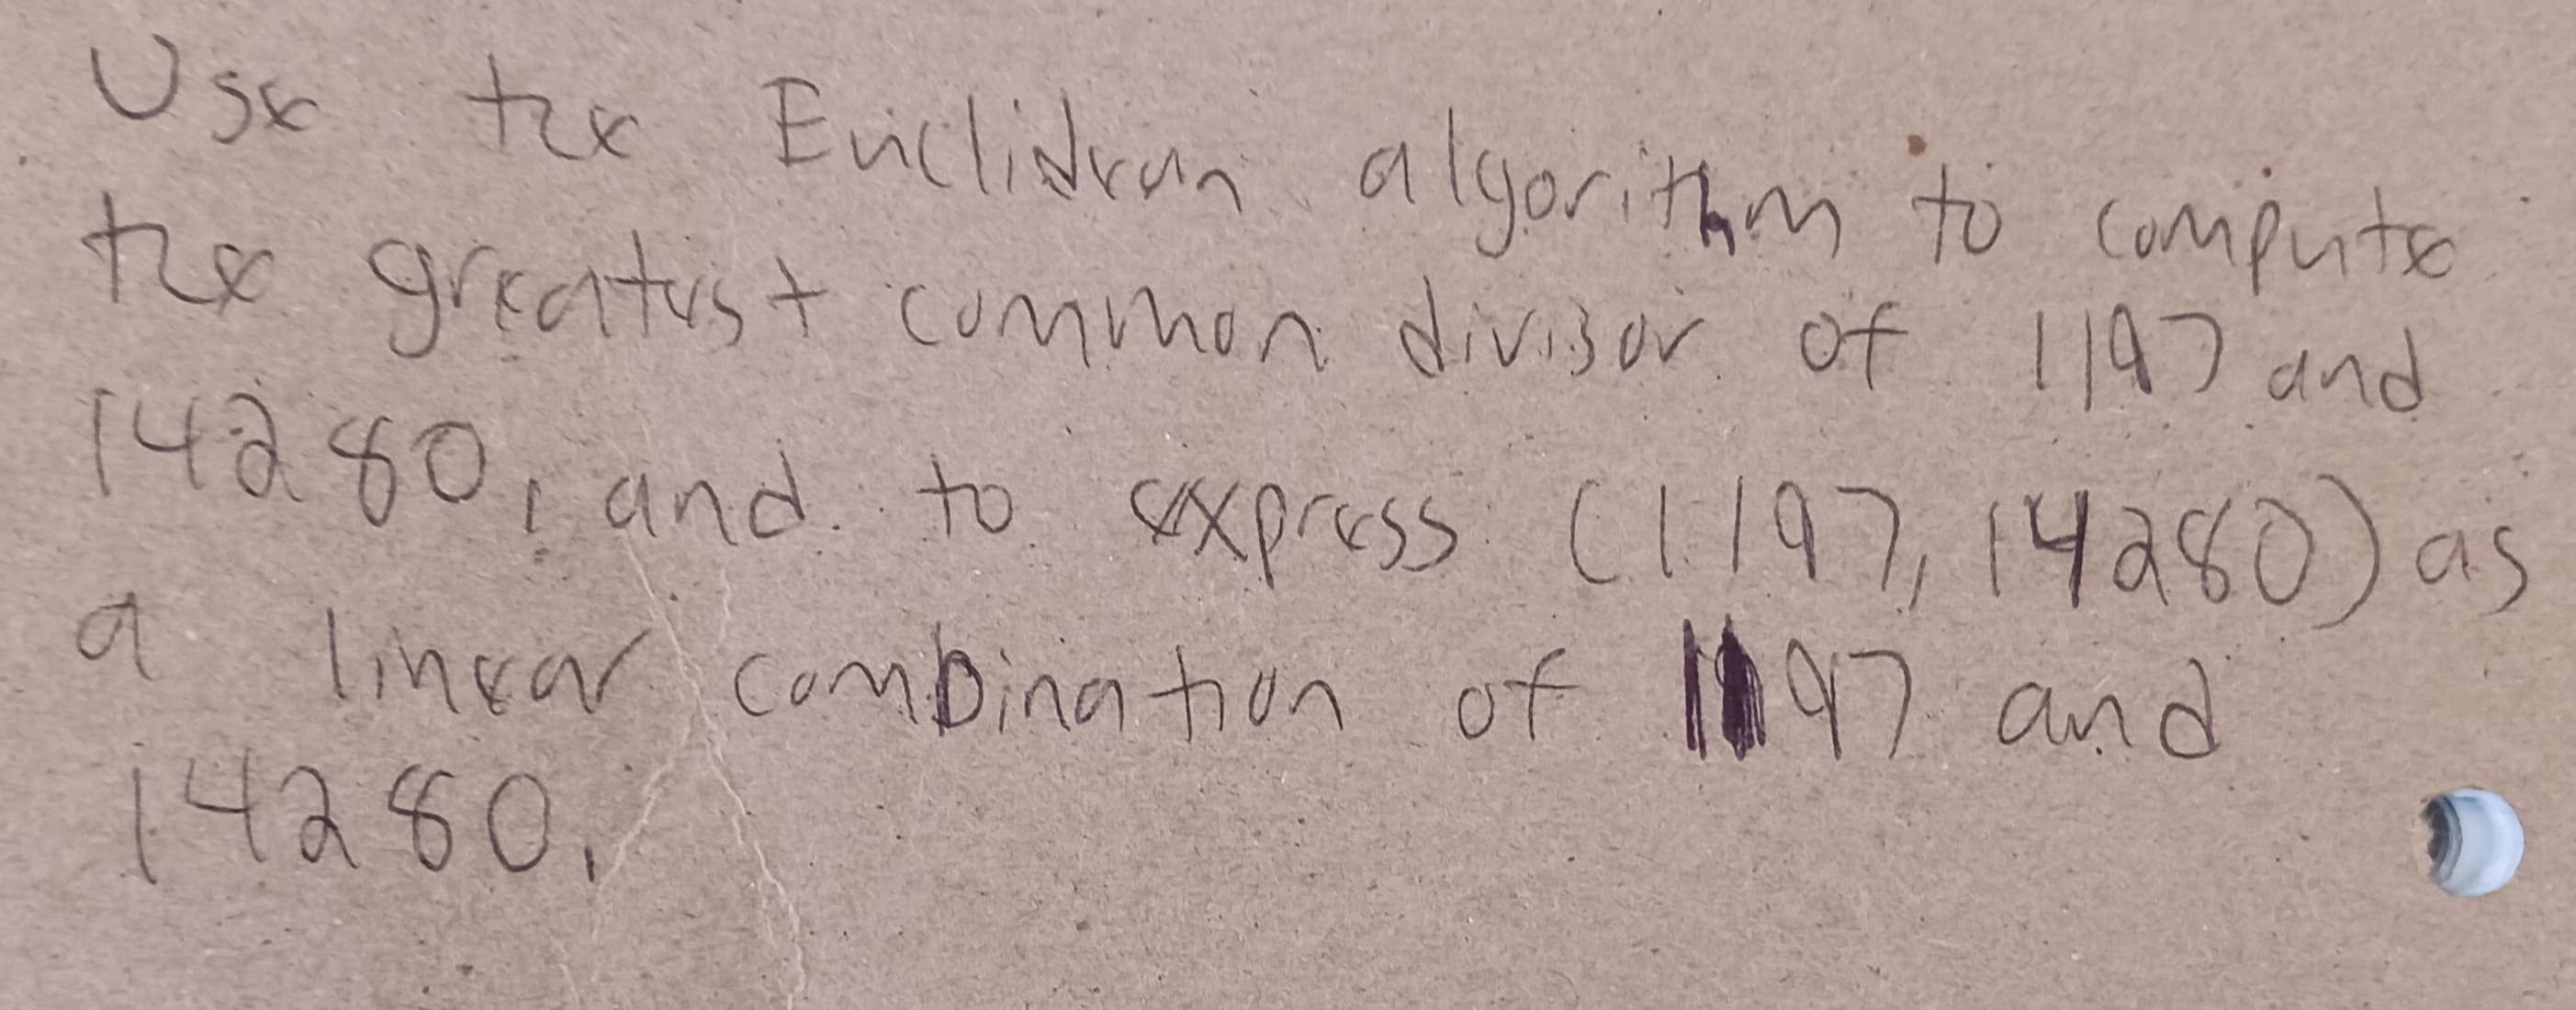 Use the Euclidean algorithm to compute
the greatest common divisor of 1197 and
14280, and to express (1197, 14280) as
a linear combination of 1197 and
14280.